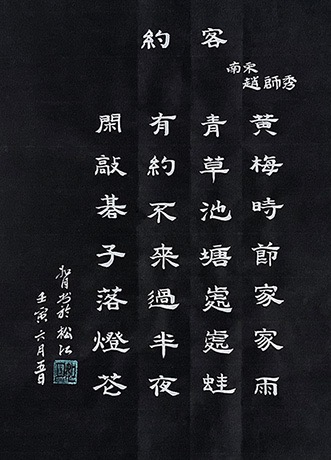 約客
南宋
趙師秀
黃梅時節家家雨
青草池塘處處蛙
有約不來過半夜
閑敲碁子落燈花
書於松江
壬寅六月五日